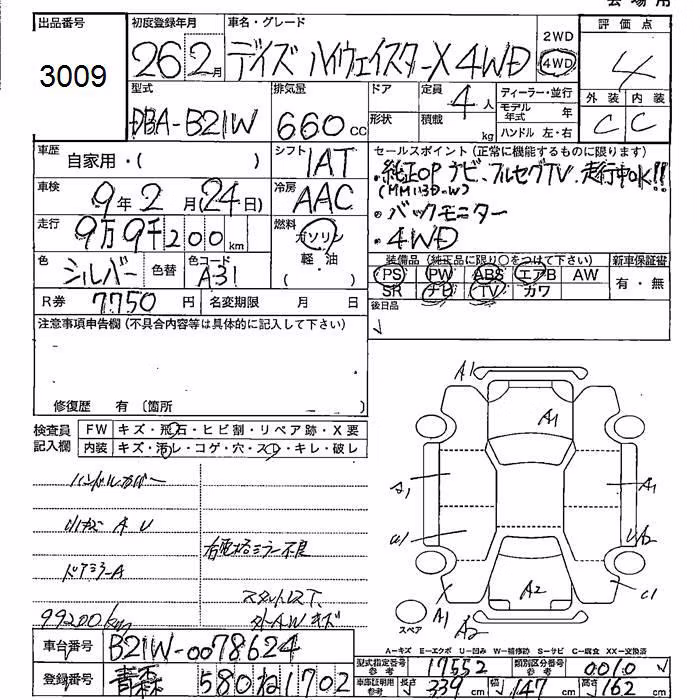 会場用
出品番号 3009
初度登録年月 26 2月
車名・グレード デイズ ハイウェイスターX 4WD
2WD 4WD
評価点 4
外装 C 内装 C
型式 DBA-B21W
排気量 660 CC
ドア 形状
定員 4人 積載 kg
ディーラー・並行
モデル年式 年
ハンドル 左・右
車歴 自家用・( )
シフト IAT
冷房 AAC
車検 9年 2月(24日)
走行 9万9千200km
燃料 ガソリン 軽・油 ( )
色 シルバー 色替 色コード A31
R券 7750円 名変期限 月 日
セールスポイント(正常に機能するものに限ります)
・純正OP ナビ、フルセグTV、走行中OK!!
(MM113D-W)
・バックモニター
・4WD
装備品(純正品に限り○をつけて下さい) 新車保証書
PS PW ABS エアB AW 有・無
SR ナビ TV カワ
後日品
注意事項申告欄(不具合内容等は具体的に記入して下さい)
修復歴 有〔箇所 〕
検査員記入欄
FW キズ・飛石・ヒビ割・リペア跡・X要
内装 キズ・汚レ・コゲ・穴・スレ・キレ・破レ
ハンドルカバー
AU
右電格ミラー不良
ドアミラーA
スタットレス下、
99200km
外AWキズ
車台番号 B21W-0078624
登録番号 青森 580 ね 1702
A1
A1
A1
A1
A2
C1
A1
A2
スペア
A-キズ E-エクボ U-凹み W-補修跡 S-サビ C-腐食 XX-交換済
型式指定番号 参考 17552 類別区分番号 参考 0010
車庫証明用 参考 長さ 339cm 幅 147 高さ 162cm